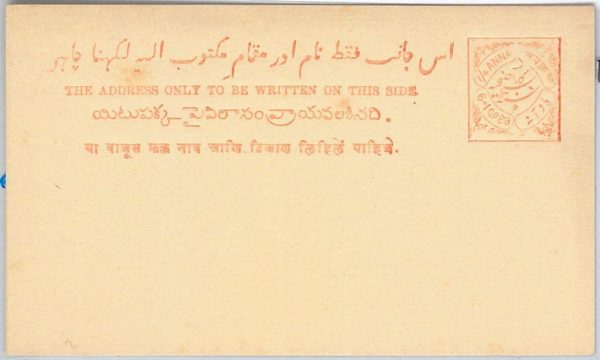 اس جانب فقط نام اور مقام مکتوب الیہ لکہنا چاہیے
THE ADDRESS ONLY TO BE WRITTEN ON THIS SIDE.
యిటుపక్క పైవిలాసంవ్రాయవలశినది.
या बाजूस फक्त नाव आणि ठिकाण लिहिलें पाहिजे.
1/4 ANNA